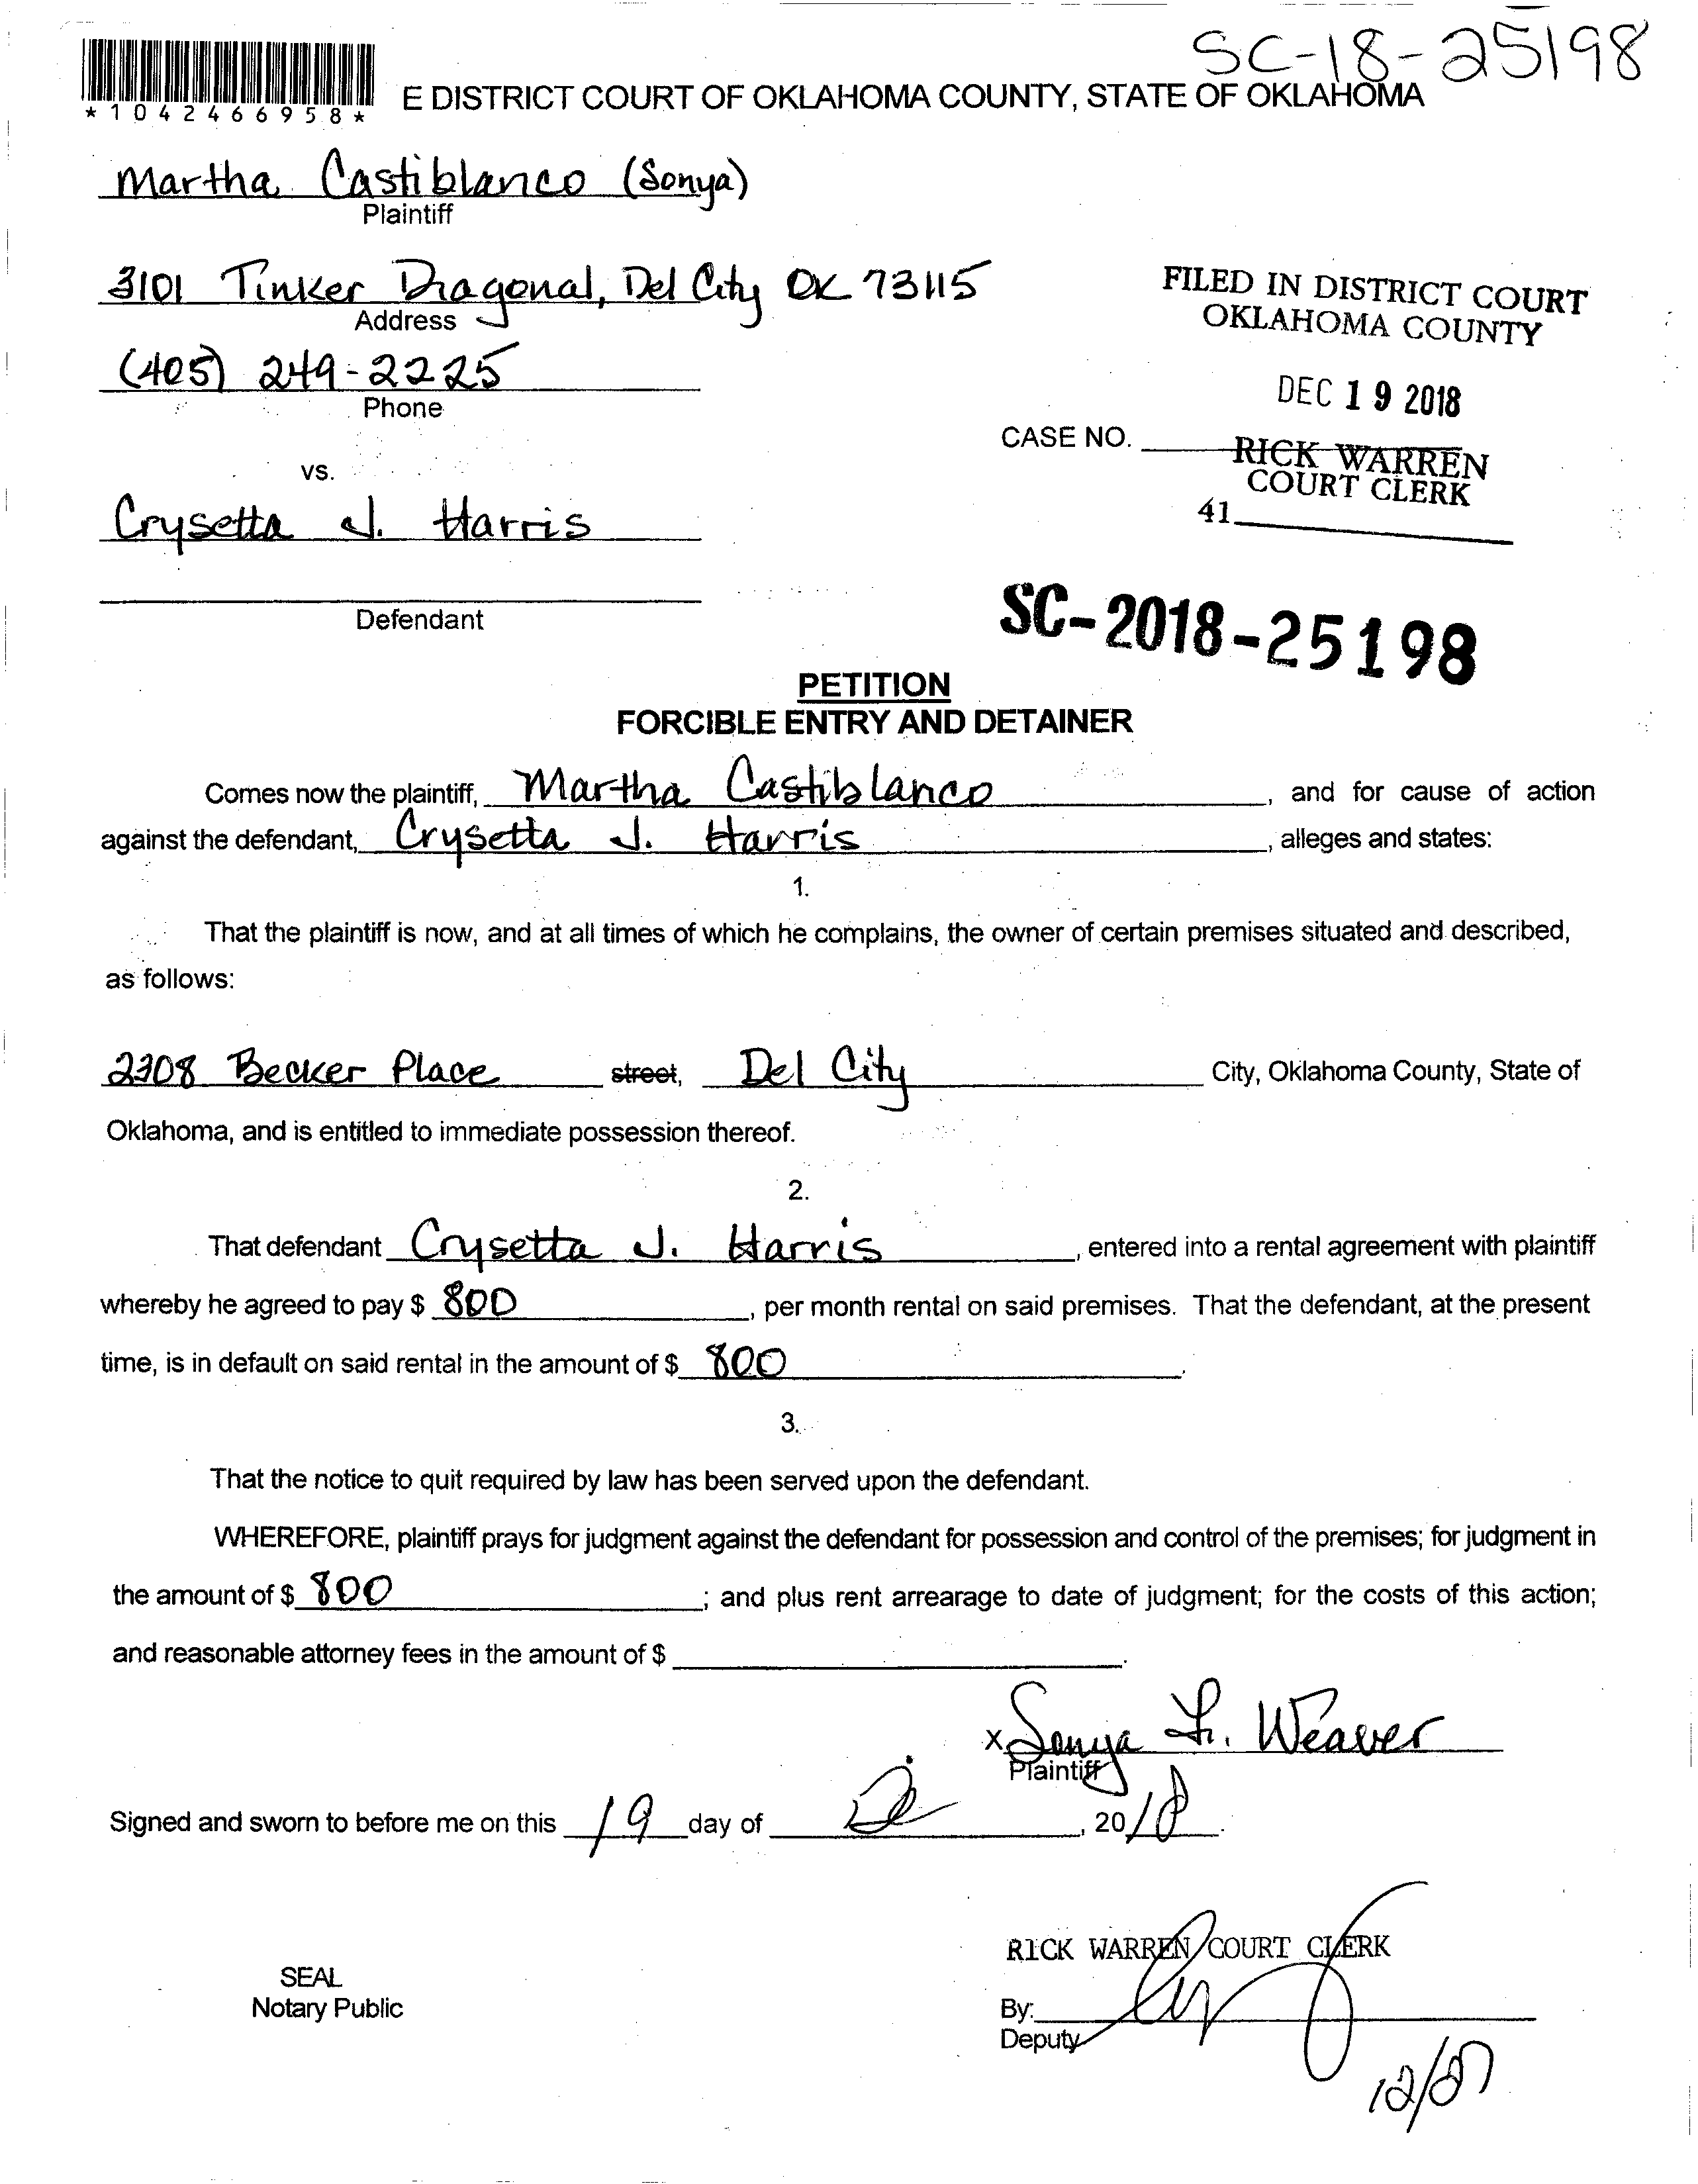 SC-18-25198
*1042466958*
E DISTRICT COURT OF OKLAHOMA COUNTY, STATE OF OKLAHOMA
Martha Castiblanco (Sonya)
Plaintiff
3101 Tinker Diagonal, Del City OK 73115
Address
FILED IN DISTRICT COURT
OKLAHOMA COUNTY
(405) 249-2225
Phone
DEC 19 2018
CASE NO.
RICK WARREN
COURT CLERK
vs.
41
Crysetta J. Harris
Defendant
SC-2018-25198
PETITION
FORCIBLE ENTRY AND DETAINER
Comes now the plaintiff, Martha Castiblanco, and for cause of action
against the defendant, Crysetta J. Harris, alleges and states:
1.
That the plaintiff is now, and at all times of which he complains, the owner of certain premises situated and described,
as follows:
2308 Becker Place street, Del City City, Oklahoma County, State of
Oklahoma, and is entitled to immediate possession thereof.
2.
That defendant Crysetta J. Harris, entered into a rental agreement with plaintiff
whereby he agreed to pay $ 800, per month rental on said premises. That the defendant, at the present
time, is in default on said rental in the amount of $ 800.
3.
That the notice to quit required by law has been served upon the defendant.
WHEREFORE, plaintiff prays for judgment against the defendant for possession and control of the premises; for judgment in
the amount of $ 800; and plus rent arrearage to date of judgment; for the costs of this action;
and reasonable attorney fees in the amount of $ .
x Sonya L. Weaver
Plaintiff
Signed and sworn to before me on this 19 day of , 2018.
RICK WARREN COURT CLERK
SEAL
Notary Public
By:
Deputy
12/27